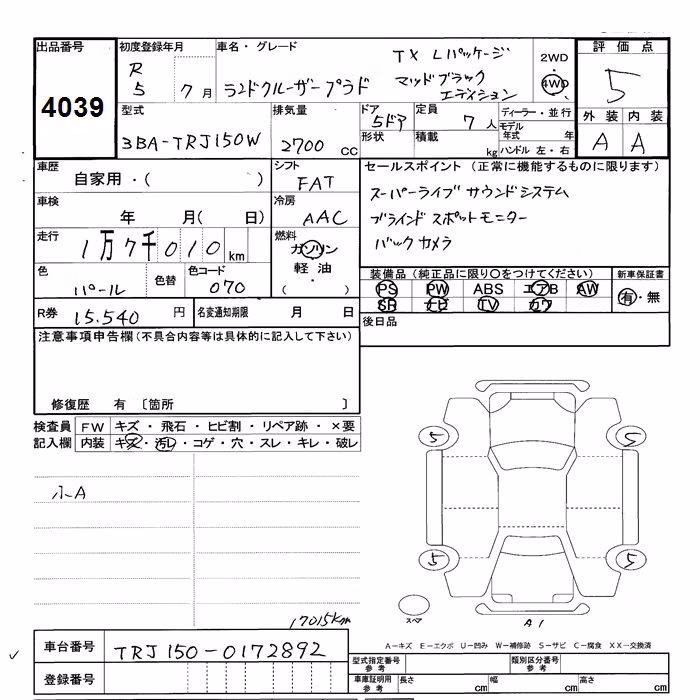 出品番号 初度登録年月 車名・グレード 評価点
4039 R5 7月 ランドクルーザープラド TX Lパッケージ 2WD 5
マッドブラック 4WD
エディション
型式 排気量 ドア 定員 ディーラー・並行 外装 内装
3BA-TRJ150W 2700 CC 5ドア 7人 モデル年式 年 A A
形状 積載 kg ハンドル 左・右
車歴 シフト セールスポイント (正常に機能するものに限ります)
自家用・( ) FAT スーパーライブサウンドシステム
車検 冷房 ブラインドスポットモニター
年 月( 日) AAC バックカメラ
走行 燃料
1万7千010 km ガソリン
軽油
( ・ )
色 色替 色コード
パール 070
装備品 (純正品に限り○をつけてください) 新車保証書
PS PW ABS エアB AW 有・無
SR ナビ TV カワ
R券 15.540 円 名変通知期限 月 日 後日品
注意事項申告欄 (不具合内容等は具体的に記入して下さい)
修復歴 有 〔箇所 〕
検査員 FW キズ・飛石・ヒビ割・リペア跡・×要
記入欄 内装 キズ・汚レ・コゲ・穴・スレ・キレ・破レ
小A
5 5
5 5
スペア A1
17015km
A-キズ E-エクボ U-凹み W-補修跡 S-サビ C-腐食 XX-交換済
車台番号 TRJ150-0172892
型式指定番号 参考 類別区分番号 参考
登録番号
車庫証明用 参考 長さ cm 幅 cm 高さ cm